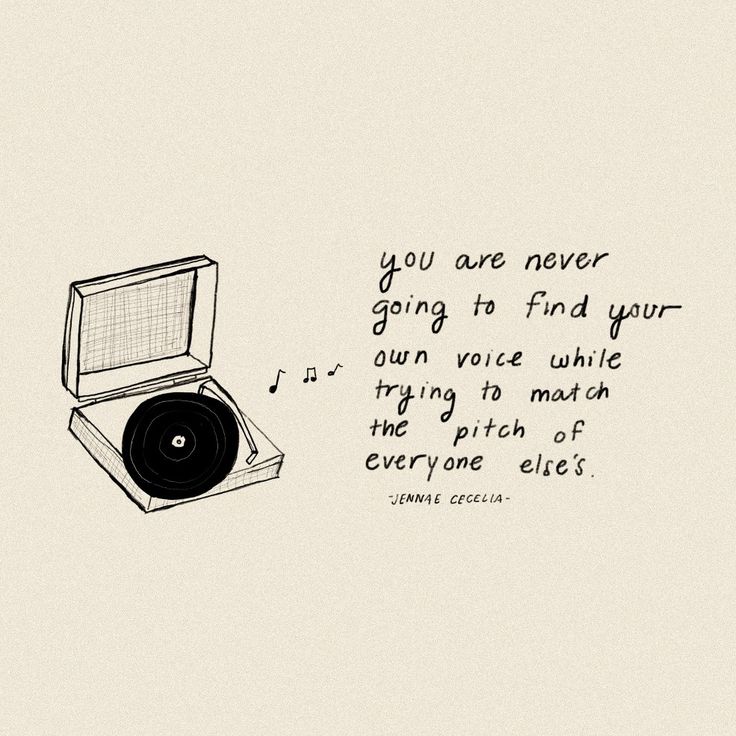 you are never
going to find your
own voice while
trying to match
the pitch of
everyone else's.
-JENNAE CECELIA-